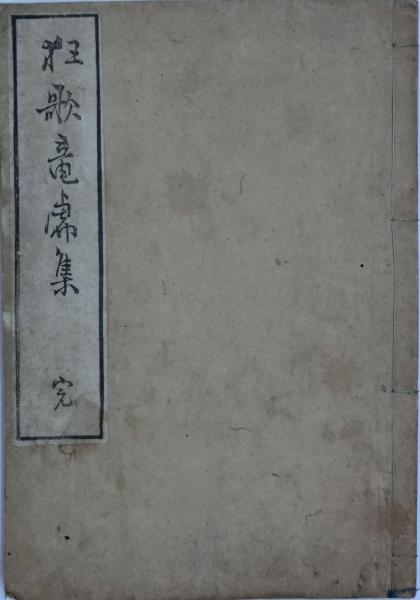 狂歌竜虎集 完